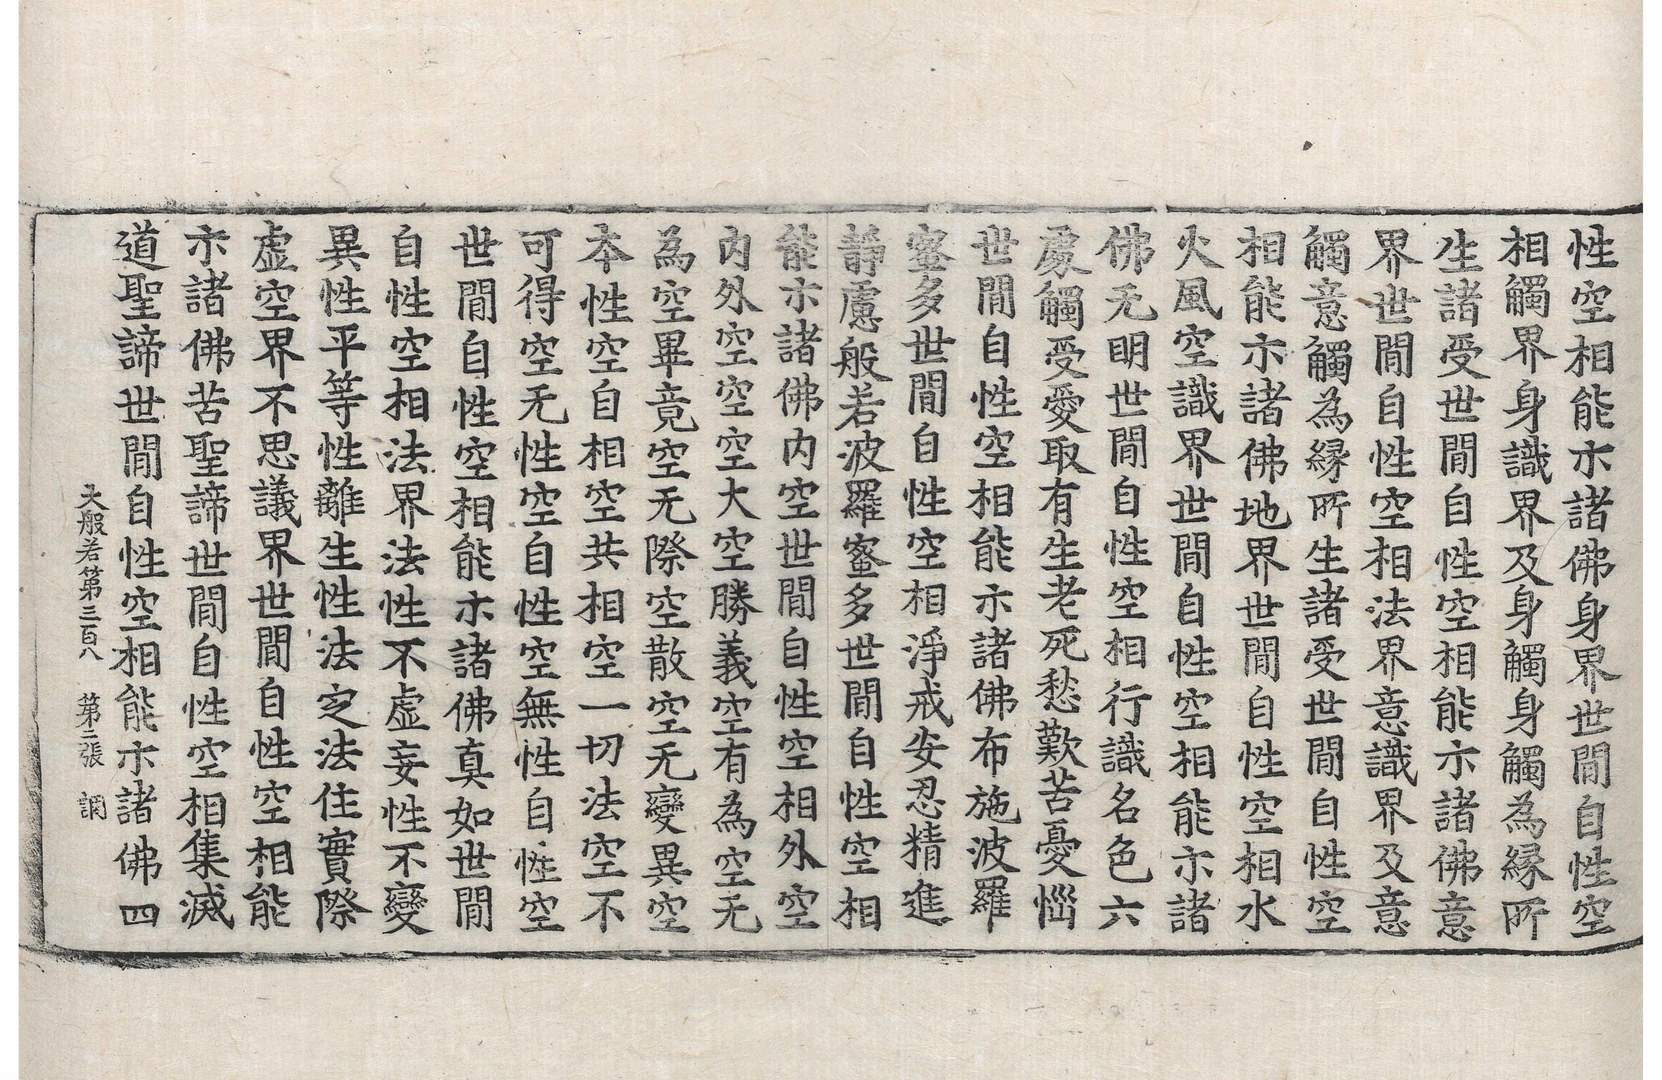 性空相能示諸佛身界世間自性空
相觸界身識界及身觸身觸為縁所
生諸受世間自性空相能示諸佛意
界世間自性空相法界意識界及意
觸意觸為縁所生諸受世間自性空
相能示諸佛地界世間自性空相水
火風空識界世間自性空相能示諸
佛无明世間自性空相行識名色六
處觸受愛取有生老死愁歎苦憂惱
世間自性空相能示諸佛布施波羅
蜜多世間自性空相淨戒安忍精進
靜慮般若波羅蜜多世間自性空相
能示諸佛内空世間自性空相外空
内外空空空大空勝義空有為空无
為空畢竟空无際空散空无變異空
本性空自相空共相空一切法空不
可得空无性空自性空無性自性空
世間自性空相能示諸佛真如世間
自性空相法界法性不虛妄性不變
異性平等性離生性法定法住實際
虛空界不思議界世間自性空相能
示諸佛苦聖諦世間自性空相集滅
道聖諦世間自性空相能示諸佛四
大般若第三百八 第二張 調